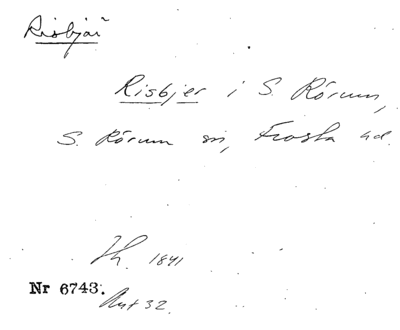 Risbjär
Risbjer i S. Rörum,
S. Rörum sn, Frosta hd.
Jh. 1841
Nr 6743.
Avt 32.